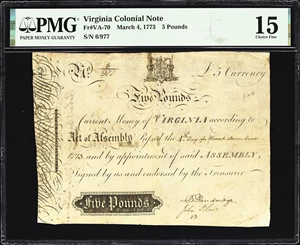 PMG
PAPER MONEY GUARANTY
Virginia Colonial Note
Fr#VA-70 March 4, 1773 5 Pounds
S/N 6/977
15
Choice Fine
No
£5 Currency
Five Pounds
Current Money of VIRGINIA according to
Act of Assembly Passed the 4th Day of March
1773, and by appointment of said ASSEMBLY,
Signed by us and endorsed by the Treasurer
Five Pounds